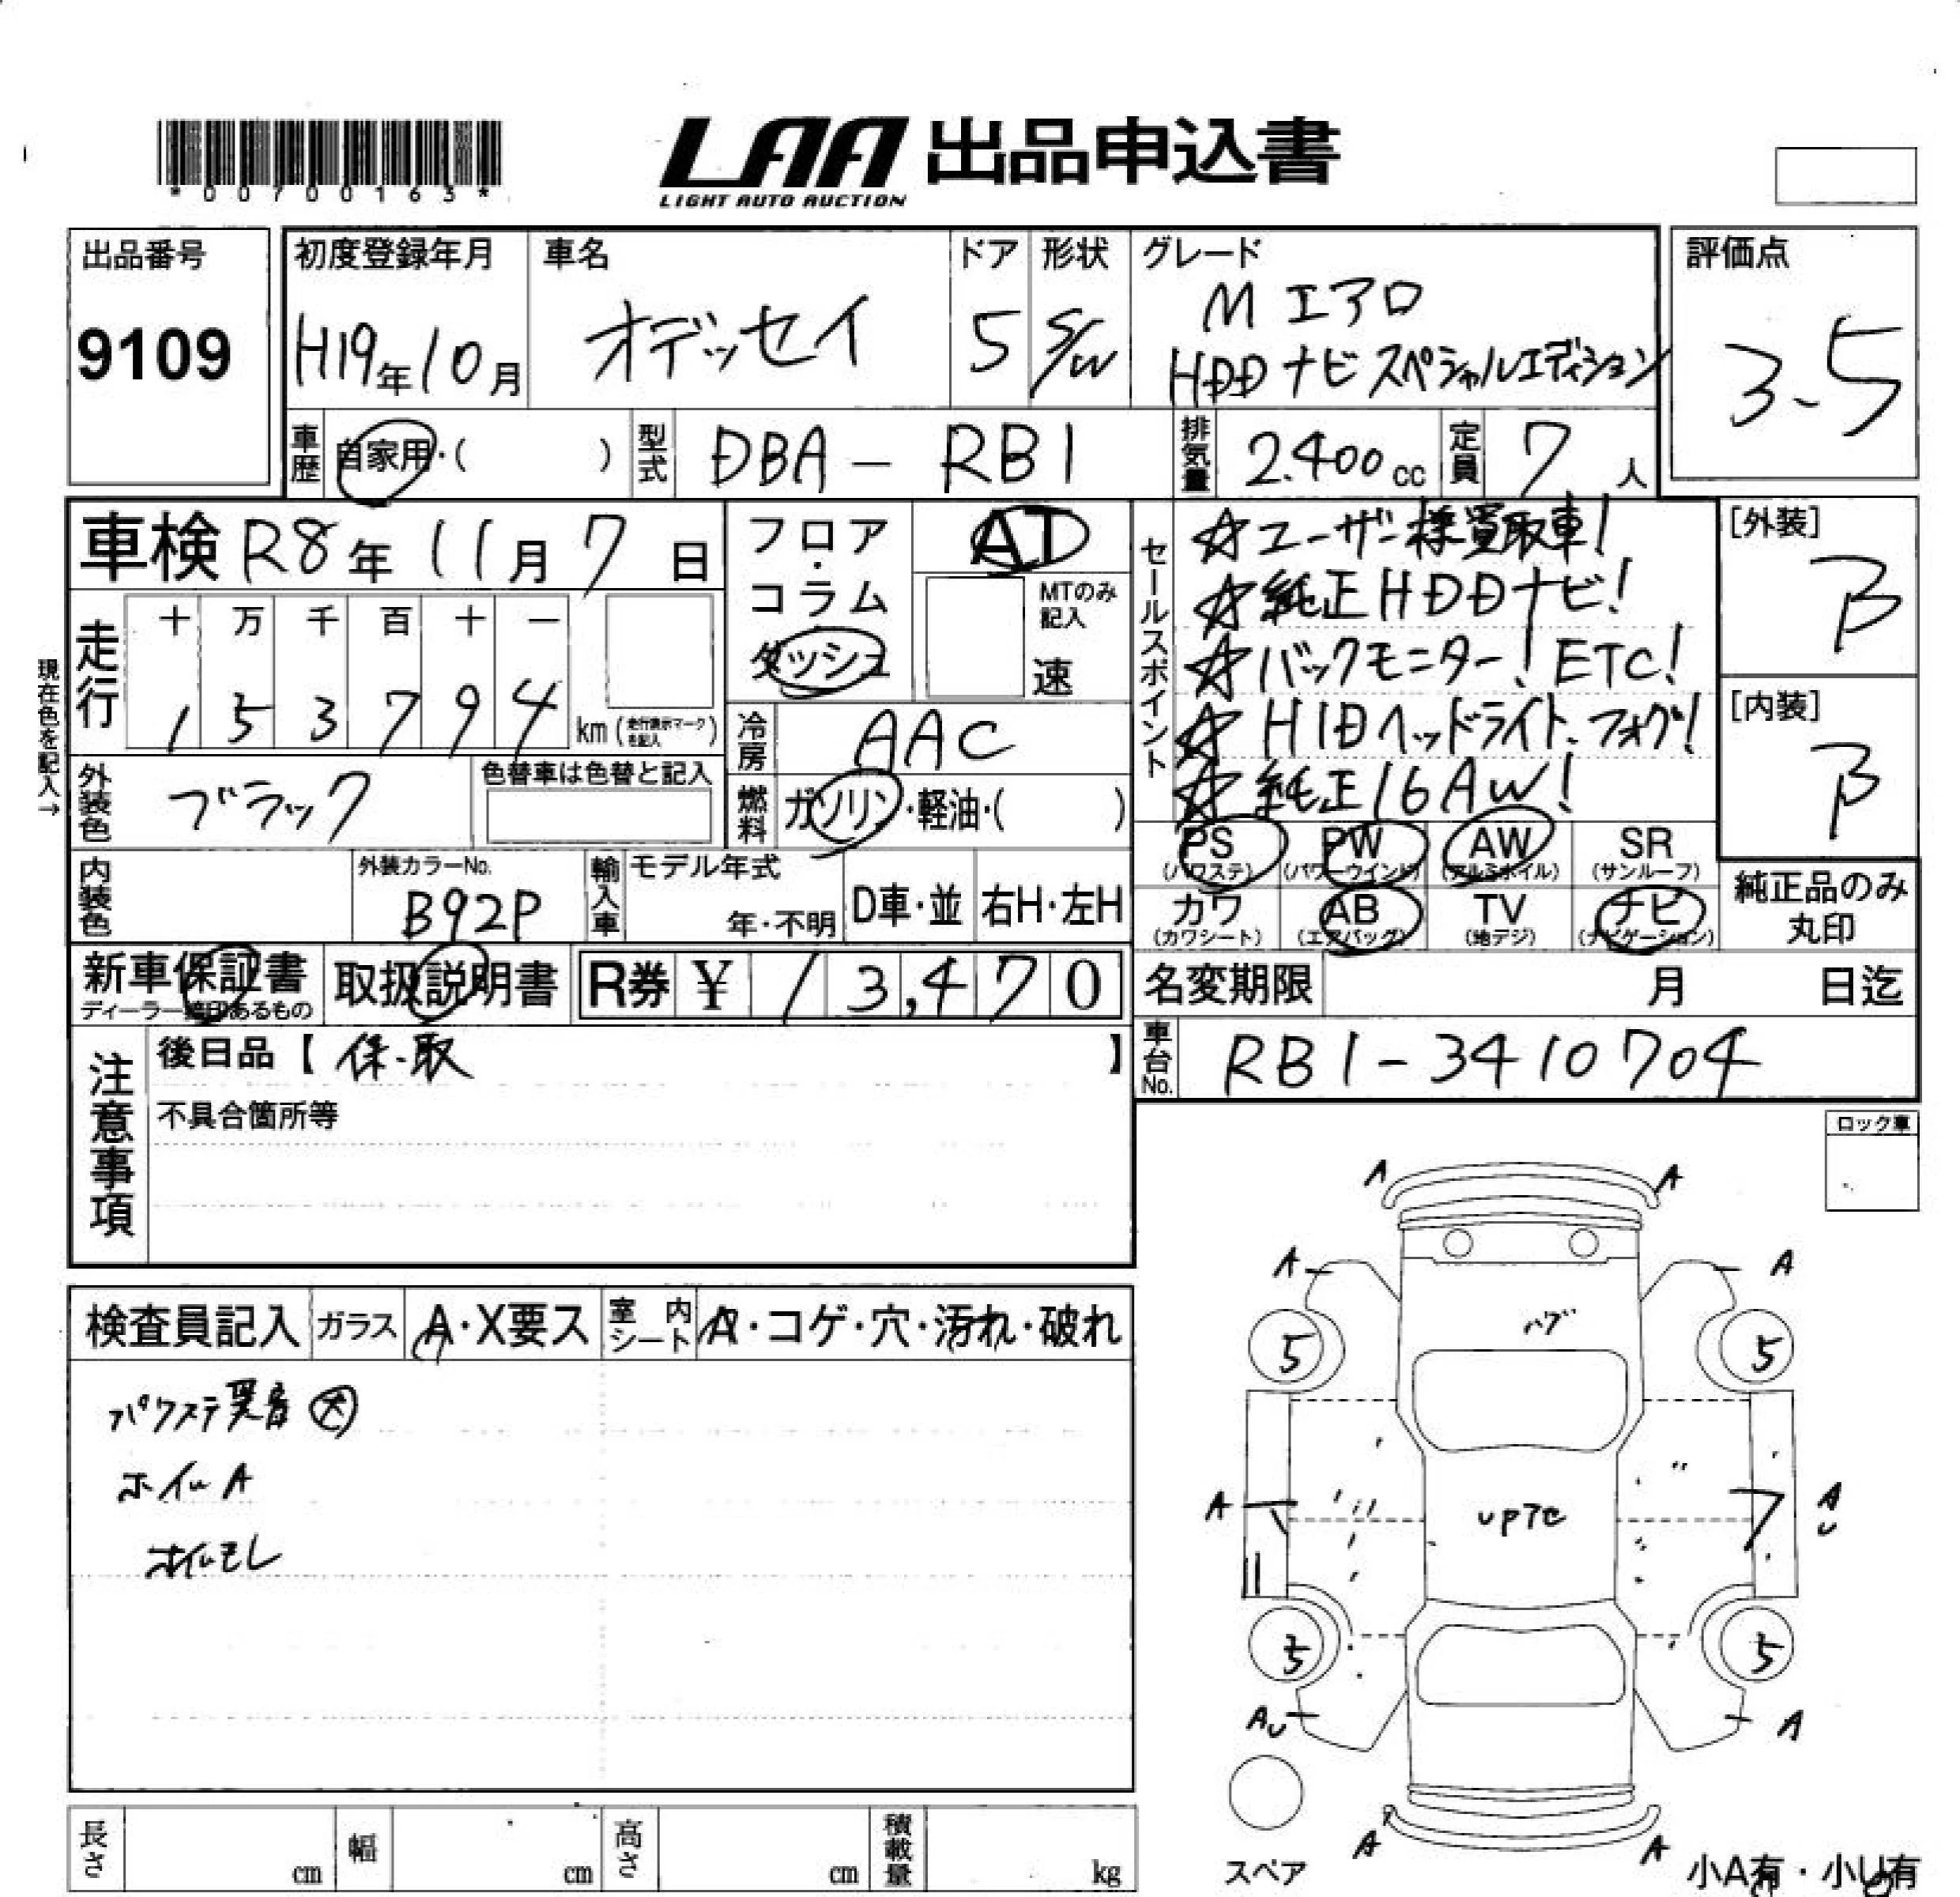 *00700163*
LAA 出品申込書
LIGHT AUTO AUCTION
出品番号
9109
初度登録年月
H19年10月
車名
オデッセイ
ドア
5
形状
S/W
グレード
M エアロ
HDD ナビ スペシャルエディション
評価点
3.5
車歴
自家用・( )
型式
DBA - RB1
排気量
2.400cc
定員
7人
車検 R8年11月7日
現在色を記入→
走行
十 万 千 百 十 一
1 5 3 7 9 4 km (走行表示マークを記入)
フロア・コラム
ダッシュ
AT
MTのみ記入
速
冷房
AAC
燃料
ガソリン・軽油・( )
外装色
ブラック
色替車は色替と記入
内装色
外装カラーNo.
B92P
輸入車
モデル年式
年・不明
D車・並
右H・左H
セールスポイント
☆ユーザー様買取車!
☆純正HDDナビ!
☆バックモニター! ETC!
☆HIDヘッドライト、フォグ!
☆純正16AW!
[外装]
B
[内装]
B
PS (パワステ)
PW (パワーウインド)
AW (アルミホイル)
SR (サンルーフ)
カワ (カワシート)
AB (エアバッグ)
TV (地デジ)
ナビ (ナビゲーション)
純正品のみ丸印
新車保証書
ディーラー捺印あるもの
取扱説明書
R券 ¥ 13,470
名変期限 月 日迄
車台No.
RB1-3410704
注意事項
後日品【 保・取 】
不具合箇所等
ロック車
検査員記入
ガラス
A・X要ス
室内シート
A・コゲ・穴・汚れ・破れ
パワステ異音 大
ホイルA
オイルモレ
A A
A A
ハゲ
5 5
A
A U
upアセ
3 5
AU A
A A
スペア
小A有・小U有
長さ cm
幅 cm
高さ cm
積載量 kg